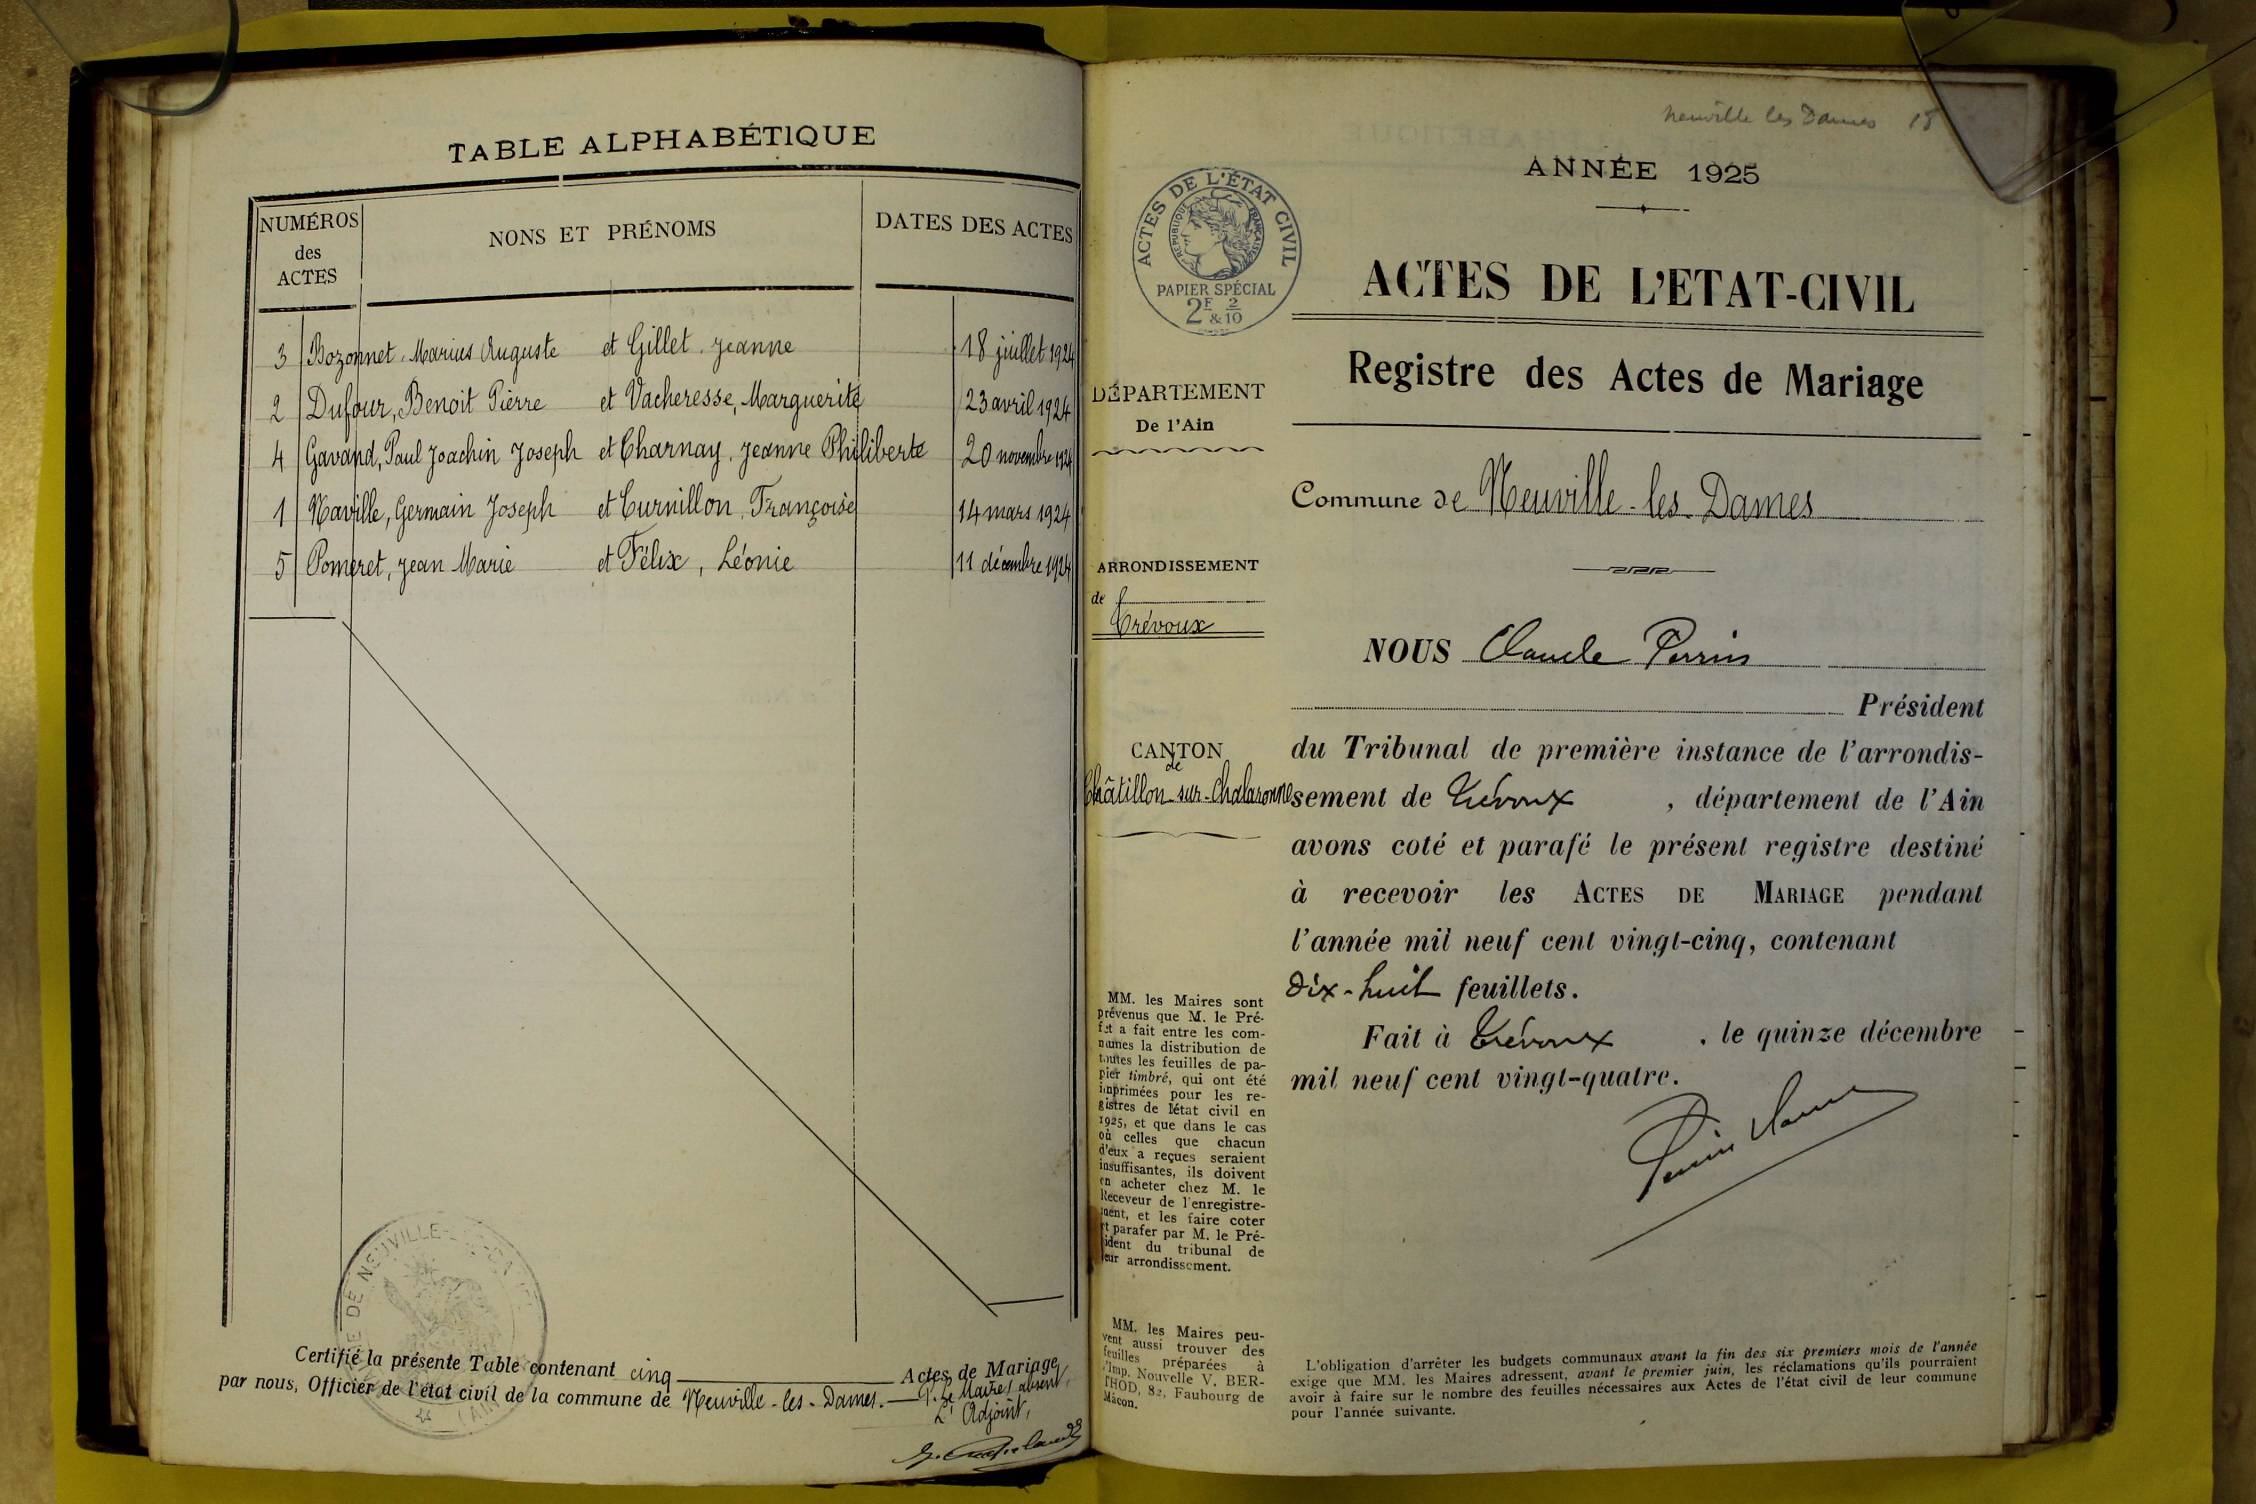 TABLE ALPHABÉTIQUE
NUMÉROS
des
ACTES
NONS ET PRÉNOMS
DATES DES ACTES
3 Bozonnet, Marius Auguste et Gillet, Jeanne 18 juillet 1924
2 Dufour, Benoit Pierre et Vacheresse, Marguerite 23 avril 1924
4 Gavand, Paul Joachin Joseph et Charnay, Jeanne Philiberte 20 novembre 1924
1 Naville, Germain Joseph et Curnillon, Françoise 14 mars 1924
5 Pomeret, Jean Marie et Félix, Léonie 11 décembre 1924
DE NEUVILLE-
(AIN)
Certifié la présente Table contenant cinq Actes de Mariage
par nous, Officier de l'état civil de la commune de Neuville-les-Dames.
P. le Maire absent,
L'Adjoint,
Neuville les Dames 18
ANNÉE 1925
ACTES DE L'ÉTAT CIVIL
RÉPUBLIQUE FRANÇAISE
PAPIER SPÉCIAL
2F & 2/10
ACTES DE L'ETAT-CIVIL
Registre des Actes de Mariage
DÉPARTEMENT
De l'Ain
Commune de Neuville-les-Dames
ARRONDISSEMENT
de
Trévoux
CANTON
de
Châtillon-sur-Chalaronne
NOUS Claude Perrin
Président
du Tribunal de première instance de l'arrondis-
sement de Trévoux, département de l'Ain
avons coté et parafé le présent registre destiné
à recevoir les ACTES DE MARIAGE pendant
l'année mil neuf cent vingt-cinq, contenant
dix-huit feuillets.
Fait à Trévoux, le quinze décembre
mil neuf cent vingt-quatre.
Perrin Claude
MM. les Maires sont
prévenus que M. le Pré-
fet a fait entre les com-
munes la distribution de
toutes les feuilles de pa-
pier timbré, qui ont été
imprimées pour les re-
gistres de l'état civil en
1925, et que dans le cas
où celles que chacun
d'eux a reçues seraient
insuffisantes, ils doivent
en acheter chez M. le
Receveur de l'enregistre-
ment, et les faire coter
et parafer par M. le Pré-
sident du tribunal de
leur arrondissement.
MM. les Maires peu-
vent aussi trouver des
feuilles préparées à
l'Imp. Nouvelle V. BER-
THOD, 82, Faubourg de
Mâcon.
L'obligation d'arrêter les budgets communaux avant la fin des six premiers mois de l'année
exige que MM. les Maires adressent, avant le premier juin, les réclamations qu'ils pourraient
avoir à faire sur le nombre des feuilles nécessaires aux Actes de l'état civil de leur commune
pour l'année suivante.